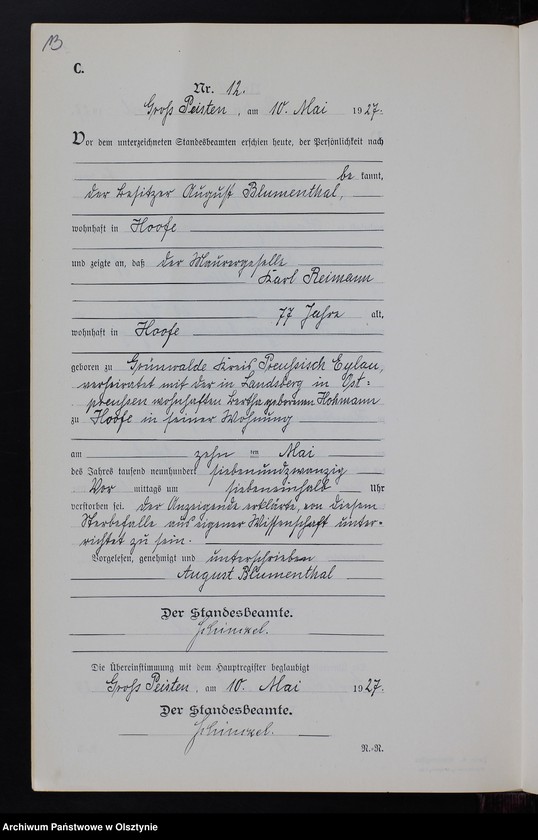 13
C.
Nr. 12.
Groß Peisten, am 10. Mai 1927.
Vor dem unterzeichneten Standesbeamten erschien heute, der Persönlichkeit nach
be kannt,
der Besitzer August Blumenthal,
wohnhaft in Hoofe
und zeigte an, daß der Maurergeselle
Karl Reimann
77 Jahre alt,
wohnhaft in Hoofe
geboren zu Grünwalde Kreis Preußisch Eylau,
verheiratet mit der in Landsberg in Ost-
preußen wohnhaften Bertha geborenen Hohmann
zu Hoofe in seiner Wohnung
am zehn ten Mai
des Jahres tausend neunhundert siebenundzwanzig
Vor mittags um siebeneinhalb Uhr
verstorben sei. Der Anzeigende erklärte, von diesem
Sterbefalle aus eigener Wissenschaft unter-
richtet zu sein.
Vorgelesen, genehmigt und unterschrieben
August Blumenthal
Der Standesbeamte.
Die Übereinstimmung mit dem Hauptregister beglaubigt
Groß Peisten, am 10. Mai 1927.
Der Standesbeamte.
N.-R.
Archiwum Państwowe w Olsztynie